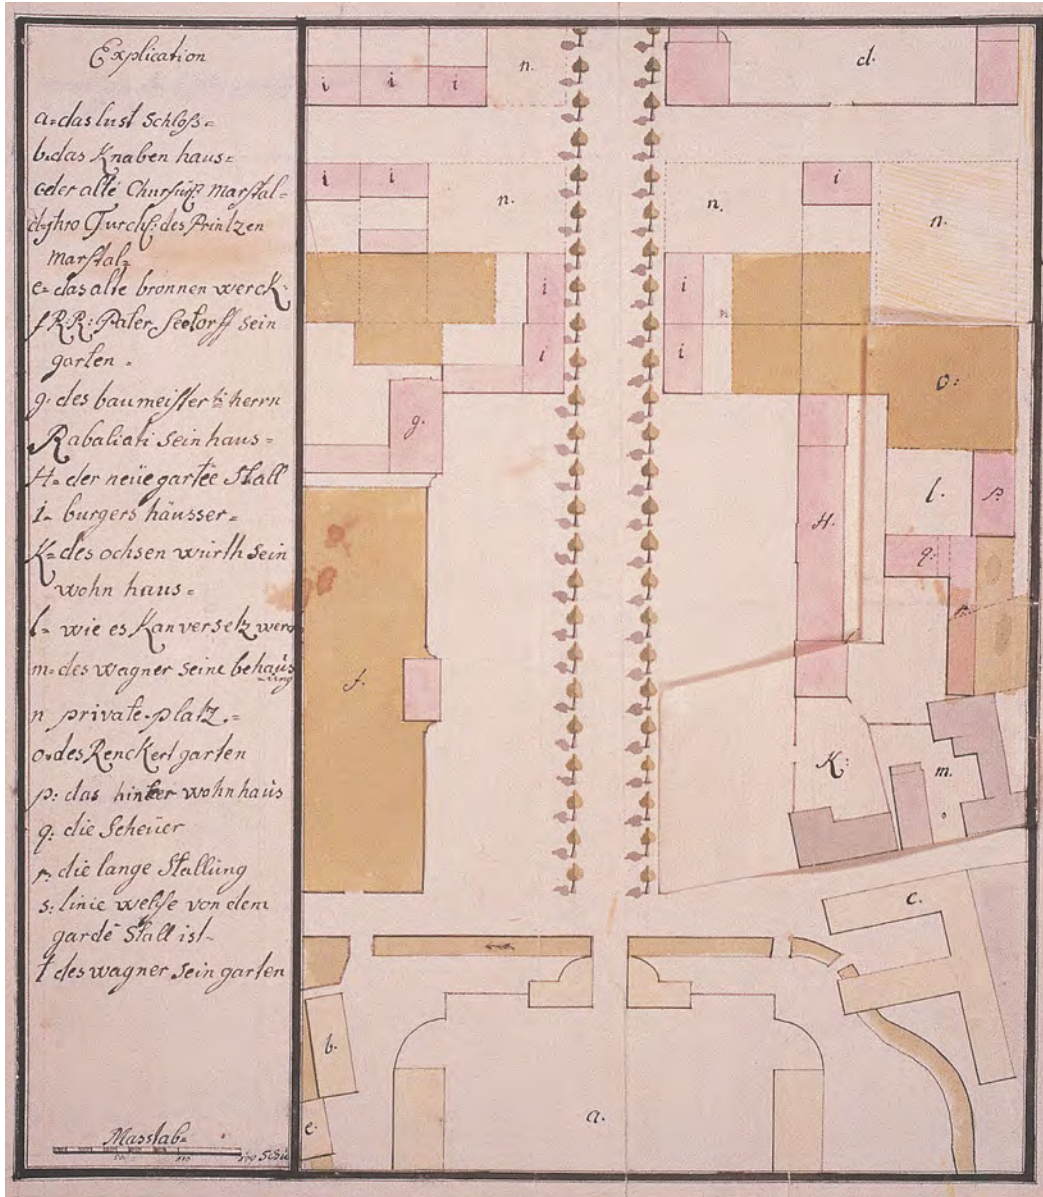 Explication
a=das lust Schloss=
b=das Knaben haus=
c=der alte Churfürst: marstal=
d=jhro Durchl: des Printzen
marstal=
e=das alte bronnen werck=
f R:R: Pater Seetorff sein
garten=
g. des baumeister herrn
Rabaliati sein haus=
H= der neüe gartee Stall
i= burgers häusser=
K= des ochsen würth sein
wohn haus=
l= wie es Kan versetz
m= des wagner seine behaüs
ung
n private platz.=
o=des Renckert garten
p: das hinter wohnhaüs
q: die Scheüer
r: die lange Stallüng
s: linie welse von dem
garde Stall ist=
t des wagner sein garten
Masstab=
50 100
i i i n. d.
i i n. n. i n.
i i
i i o:
g.
l. p.
H. q:
f.
K: m.
c.
b.
a.
e.